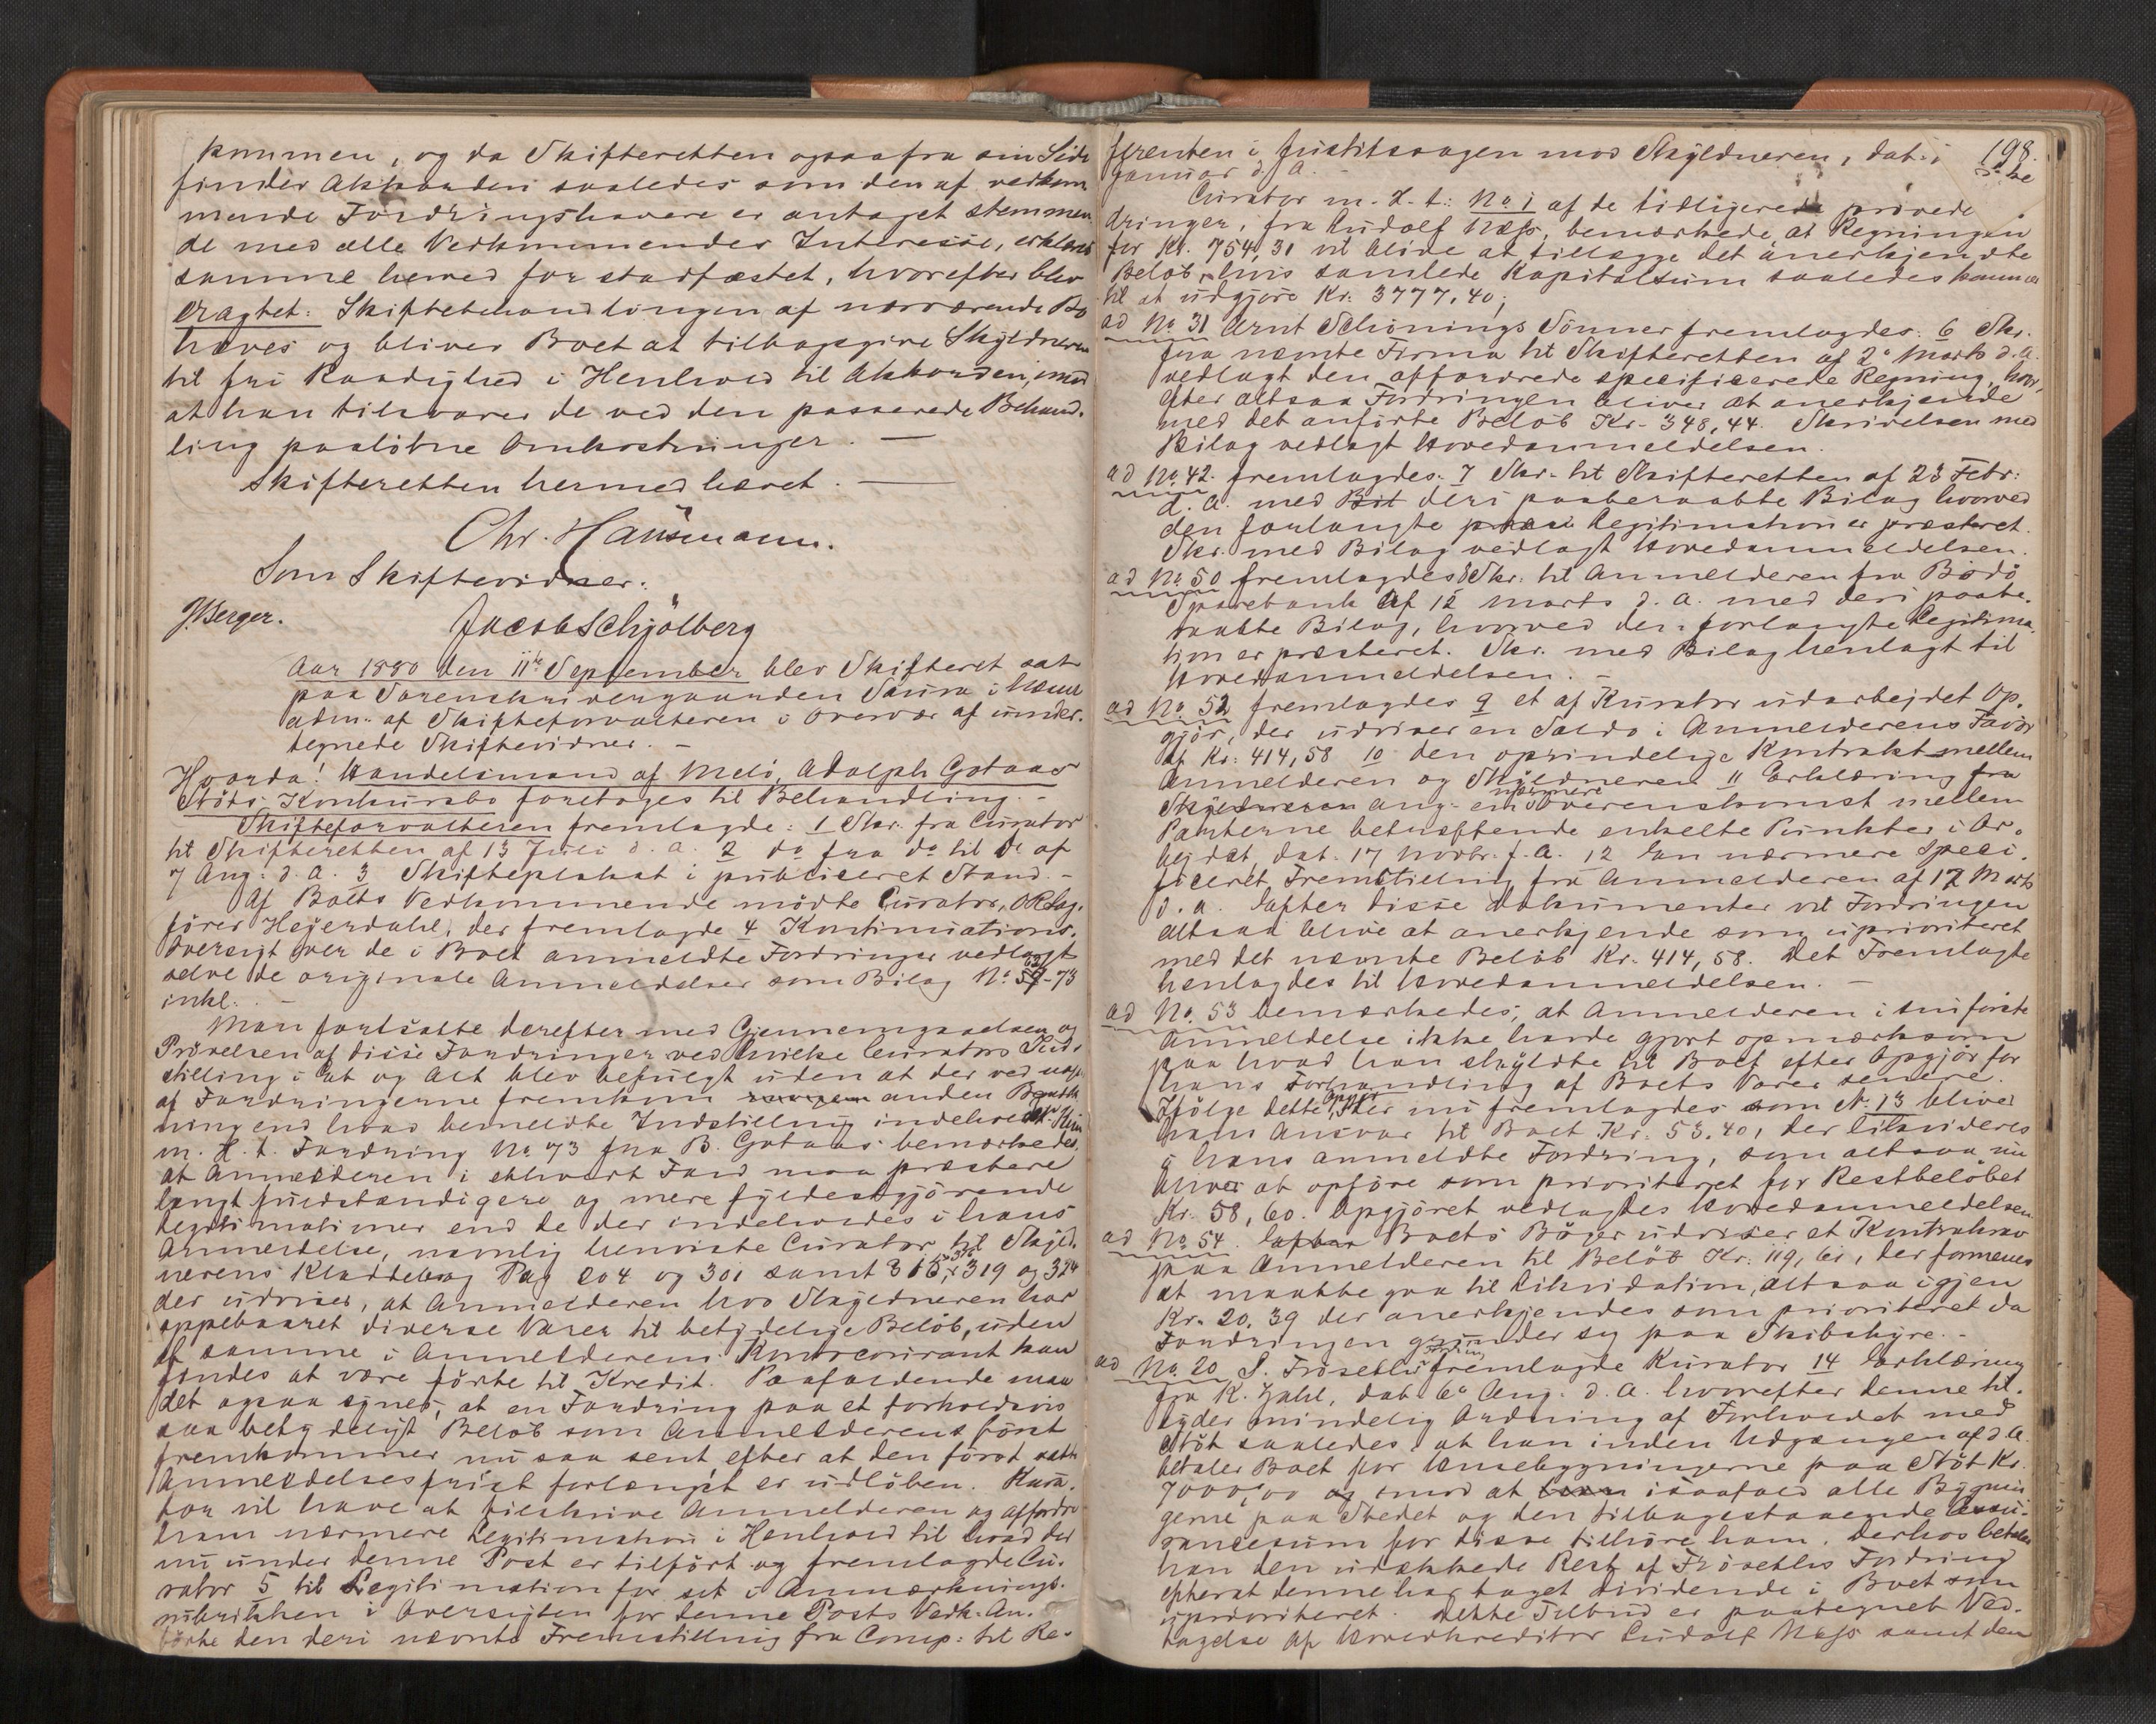 kommen, og da Skifteretten ogsaa fra sin Side
finder Akkorden saaledes som den af vedkom
mende Fordringshavere er antaget stemmen
de med alle Vedkommendes Interesse, erklæres
samme herved for stadfæstet, hvorefter blev
eragtet: Skiftebehandlingen af nærværende Bo
hæves og bliver Boet at tilbagegive Skyldneren
til fri Raadighed i Henhold til Akkorden, imod
at han tilsvarer de ved den passerede Behand-
ling paaløbne Omkostninger. —
Skifteretten hermed hævet. —
Chr. Hausmann.
Som Skiftevidner:
J. Berger.
Jacob Schjölberg
Aar 1880 den 11te September blev Skifteret sat
paa Sorenskrivergaarden Saura i
adm. af Skifteforvalteren i Overvær af under-
tegnede Skiftevidner. —
Hvorda: Handelsmand af Melö, Adolph Gotaas
Stöts Konkursbo foretoges til Behandling. —
Skifteforvalteren fremlagde: 1 Skr. fra Curator
til Skifteretten af 13 Juli d. a. 2 do fra do til do af
7 Aug: d. a. 3 Skifteplakat i publiceret Stand. —
Af Boets Vedkommende mödte Curator, ORSag-
förer Heyerdahl, der fremlagde 4 Kontinuations-
oversigt over de i Boet anmeldte Fordringer vedlagt
selve de originale Anmeldelser som Bilag No 59-73
inkl. —
Man fortsatte derefter med Gjennemgaaelsen og
Prövelsen af disse Fordringer ved hvilke Curators Ind-
stilling i Et og Alt blev befulgt uden at der ved nogen
af Fordringerne fremkom anden Bemærk
ning end hvad bemeldte Indstilling indeholdt. Kun
m. H. t. Fordring No 73 fra B. Gotaas bemærkedes,
at Anmelderen i ethvert Fald maa præstere
langt fuldstændigere og mere fyldestgjörende
Legitimationer end de der indeholdes i hans
Anmeldelse, navnlig henviste Curator til Skyld-
nerens Kladdebog Pag 204 og 301 samt 316, 319 og 324
der udviser, at Anmelderen hos Skyldneren har
oppebaaret diverse Varer til betydelige Belöb, uden
at samme i Anmelderens Kontocourant kan
findes at være förte til Kredit. Paafaldende maa
det ogsaa synes, at en Fordring paa et forholdsvis
saa betydeligt Belöb som Anmelderens först
fremkommer nu saa sent efter at den först satte
Anmeldelsesfrist forlængst er udlöben. Kura-
tor vil have at tilskrive Anmelderen og affordre
ham nærmere Legitimation i Henhold til hvad der
nu under denne Post er tilfört og fremlagde Cu-
rator 5 til Legitimation for sit i Anmærknings-
rubrikken i Oversigten for denne Posts Vedk. An-
förte den deri nævnte Fremstilling fra Comp: til Re-
198.
ferenten i Justitssagen mod Skyldneren, dat. i
Januar d. A. —
Curator m. H. t.: No 1 af de tidligere prövede
dringer, fra Rudolf Næss, bemærkede, at Regningen
for Kr. 754,31 vil blive at tillægge det anerkjendte
Belöb, hvis samlede Kapitalsum saaledes kommer
til at udgjöre Kr: 3777,40;
ad No 31 Arnt Schönings Sönner fremlagdes: 6 Skr.
fra nævnte Firma til Skifteretten af 2den Marts d. a.
vedlagt den affordrede specificerede Regning, hvor-
efter altsaa Fordringen bliver at anerkjende
med det anförte Belöb Kr. 348,44. Skrivelsen med
Bilag vedlagt Hovedanmeldelsen.
ad No 42. fremlagdes: 7 Skr. til Skifteretten af 23 Febr:
d. a. med Bil deri paaberaabte Bilag hvorved
den forlangte Legitimation er præsteret.
Skr. med Bilag vedlagt Hovedanmeldelsen.
ad No 50 fremlagdes 8 Skr. til Anmelderen fra Bodö
Sparebank af 12 Marts d. a. med deri paabe-
raabte Bilag, hvorved den forlangte Legitima-
tion er præsteret. Skr. med Bilag henlagt til
Hovedanmeldelsen. —
ad No 52 fremlagdes 9 et af Kurator udarbejdet Op-
gjör, der udviser en Saldo i Anmelderens Favör
af Kr: 414,58 10 den oprindelige Kontrakt mellem
Anmelderen og Skyldneren 11 Erklæring fra
Skyldneren ang. en nærmere Overenskomst mellem
Parterne betræffende enkelte Punkter i Ar-
bejdet, dat. 17 Novbr. f. A. 12 En nærmere speci-
ficeret Fremstilling fra Anmelderen af 17 Marts
d. a. Efter disse Dokumenter vil Fordringen
altsaa blive at anerkjende som uprioriteret
med det nævnte Belöb Kr. 414,58. Det Fremlagte
henlagdes til Hovedanmeldelsen. —
ad No. 53 bemærkedes, at Anmelderen i sin förste
Anmeldelse ikke havde gjort opmærksom
paa hvad han skyldte til Boet efter Opgjör for
hans Forhandling af Boets Varer senere.
Ifölge dette Opgjör, der nu fremlagdes som No 13 bliver
hans Ansvar til Boet Kr. 53,40, der likvideres
i hans anmeldte Fordring, som altsaa nu
bliver at opföre som prioriteret for Restbelöbet
Kr. 58,60. Opgjöret vedlagdes Hovedanmeldelsen
ad No 54. Efter Boets Böger udviser et Kontrakrav
paa Anmelderen til Belöb Kr. 119,61, der formenes
at maatte gaa til Likvidation, altsaa igjen
Kr. 20,39 der anerkjendes som prioriteret da
Fordringen grunder sig paa Skibshyre. —
ad No. 20 S. Fröseths fremlagde Kurator 14 Erklæring
fra K. Zahl, dat. 6te Aug. d. A. hvorefter denne til-
byder mindelig Ordning af Forholdet med
Stöt saaledes, at han inden Udgangen af d. A.
betaler Boet for Husebygningerne paa Stöt Kr.
7000,00 og imod at isaafald alle Bygnin
gerne paa Stedet og den tilbagestaaende Assu-
rancesum for disse tilhöre ham. Derhos betaler
han den udækkede Rest af Fröseths Fordring
efterat denne har taget Dividende i Boet som
uprioriteret. Dette Tilbud er paategnet Ved-
tagelse af Hovedkreditor Rudolf Næss samt den